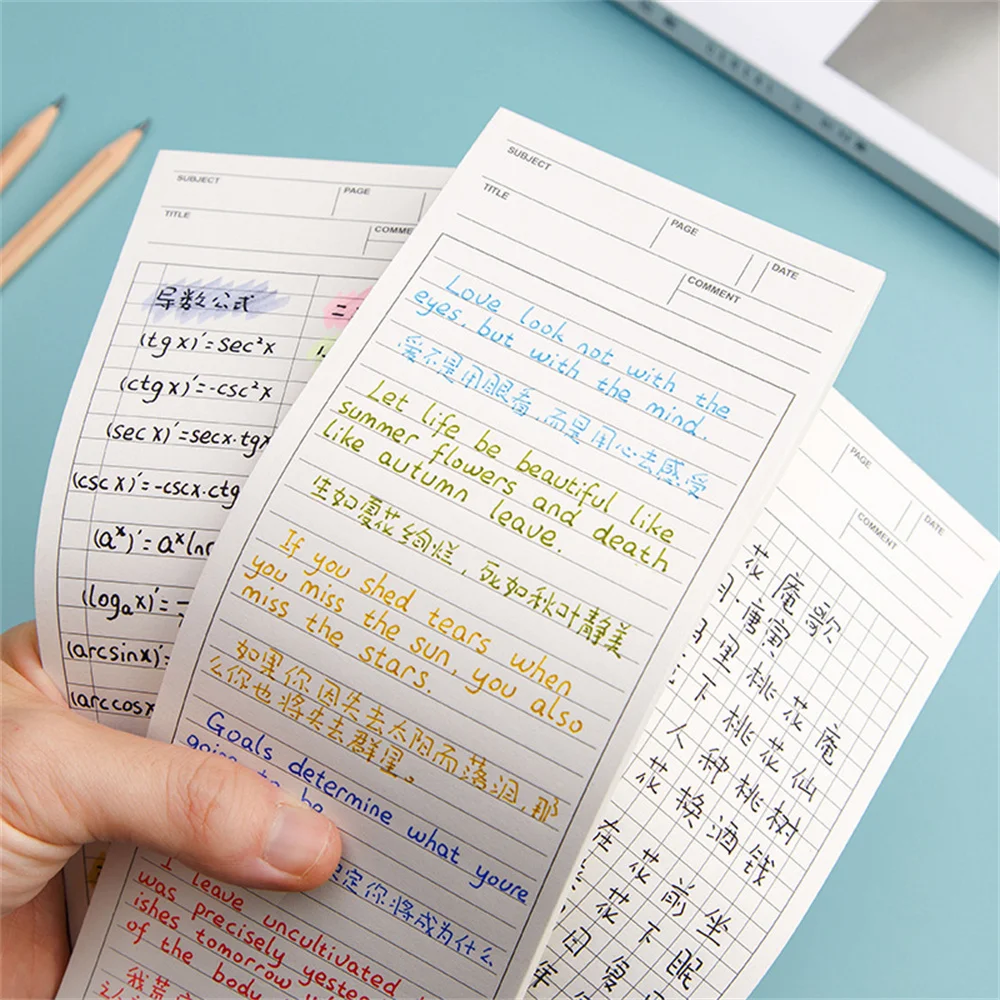 SUBJECT
PAGE
TITLE
导数公式
二
(tg x)′=sec²x
(ctg x)′=-csc²x
(sec x)′=secx·tgx
(csc x)′=-cscx·ctg
(aˣ)′=aˣln
(logₐx)′=
(arcsinx)′=
(arccosx
SUBJECT
PAGE
TITLE
DATE
COMMENT
Love look not with the
eyes, but with the mind.
爱不是用眼看,而是用心去感受
Let life be beautiful like
summer flowers and death
like autumn leave.
生如夏花绚烂,死如秋叶静美
If you shed tears when
you miss the sun, you also
miss the stars.
如果你因失去太阳而落泪,那
么你也将失去群星。
Goals determine what youre
going to be
定你将成为什么
I leave uncultivated
was precisely yester
ishes tomorrow
of the body
我荒
PAGE
COMMENT
DATE
花庵歌
唐寅
里桃花庵
下桃花仙
人种桃树
花换酒钱
在花前坐
花下眠
日复
年